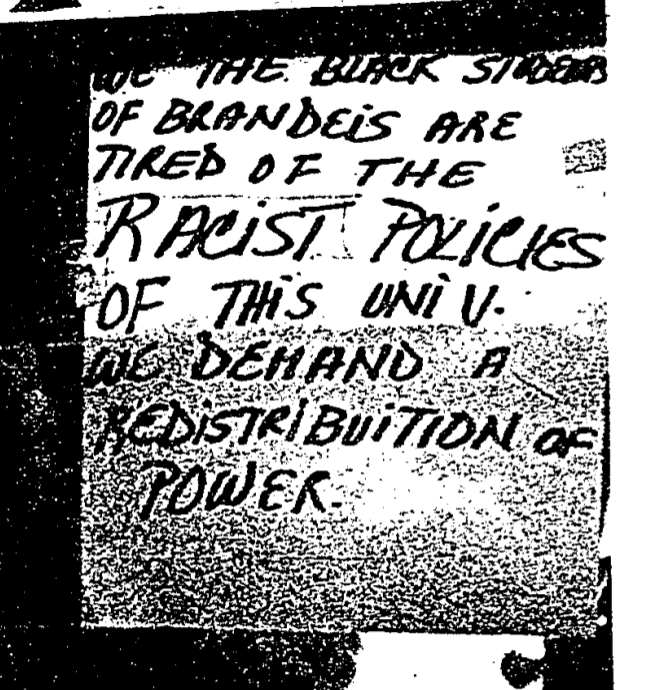 WE THE BLACK STUDENTS
OF BRANDEiS ARE
TIRED OF THE
RACiST POLiCiES
OF THiS UNiV.
WE DEMAND A
REDiSTRiBUiTION OF
POWER.